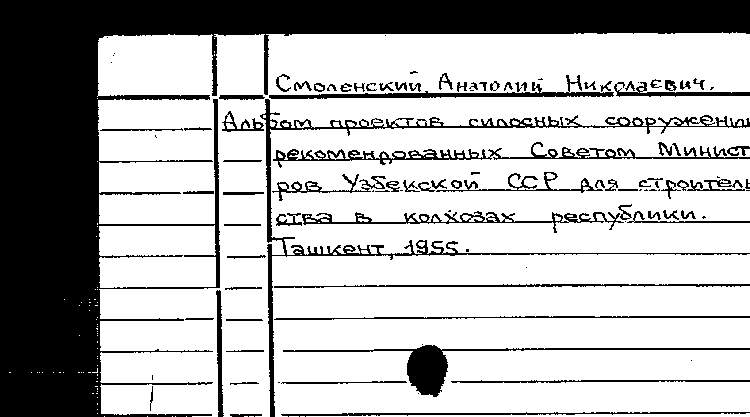 Смоленский, Анатолий Николаевич.
Альбом проектов силосных сооружени
рекомендованных Советом Минист
ров Узбекской ССР для строитель
ства в колхозах республики.
Ташкент, 1955.